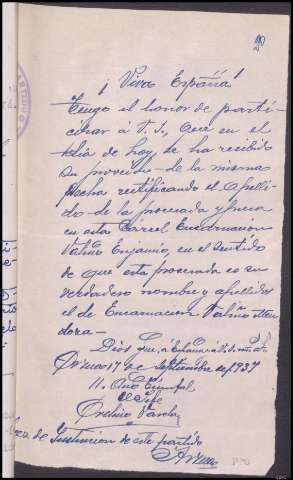 ¡Viva España!
Tengo el honor de parti-
cipar á V. S., que en el
dia de hoy se ha recibido
su proveido de la misma
fecha rectificando el apelli-
do de la procesada y presa
en esta Carcel Encarnación
en el sentido
de que esta procesada es su
verdadero nombre y apellidos
el de Encarnación
dora-
Dios gue. á V. S. m. a.
17 de Septiembre de 1937
II. Año Triunfal
El Jefe
Varela
de Instrucion de este partido